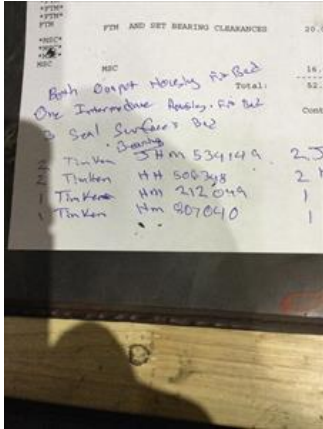 *FTM*
*FTM*
FTM FTM AND SET BEARING CLEARANCES 20.
*MSC*
MSC MSC 16.
Total: 52.
Both Output Housing Fit Bad Cont
One Intermediate Housing Fit Bad
3 Seal Surfaces Bad
Bearing
2 Timken JHM 534149 2 J
2 Timken HH 506348 2 H
1 Timken Hm 212049 1
1 Timken Hm 807040 1